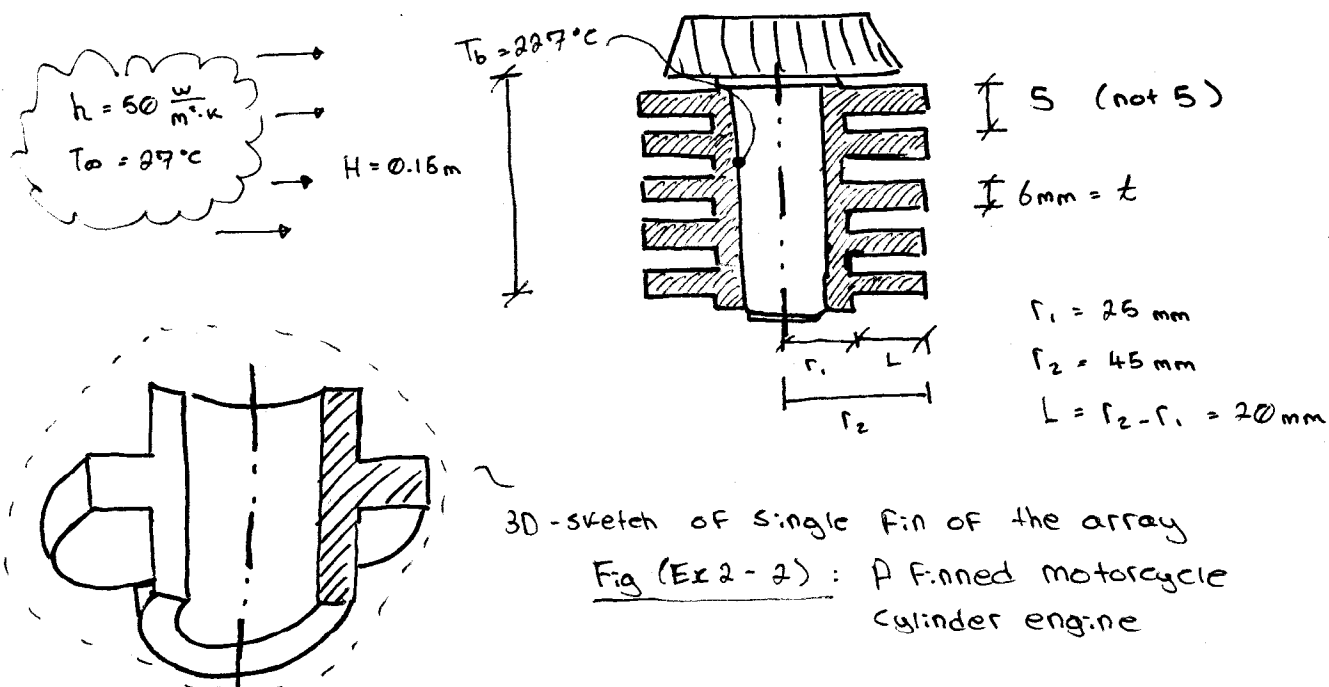 T_b = 227°C
h = 50 w/m²·K
T∞ = 27°C
H = 0.15m
S (not 5)
6mm = t
r₁
L
r₂
r₁ = 25 mm
r₂ = 45 mm
L = r₂ - r₁ = 20mm
3D-sketch of single fin of the array
Fig (Ex 2-2) : A finned motorcycle
cylinder engine